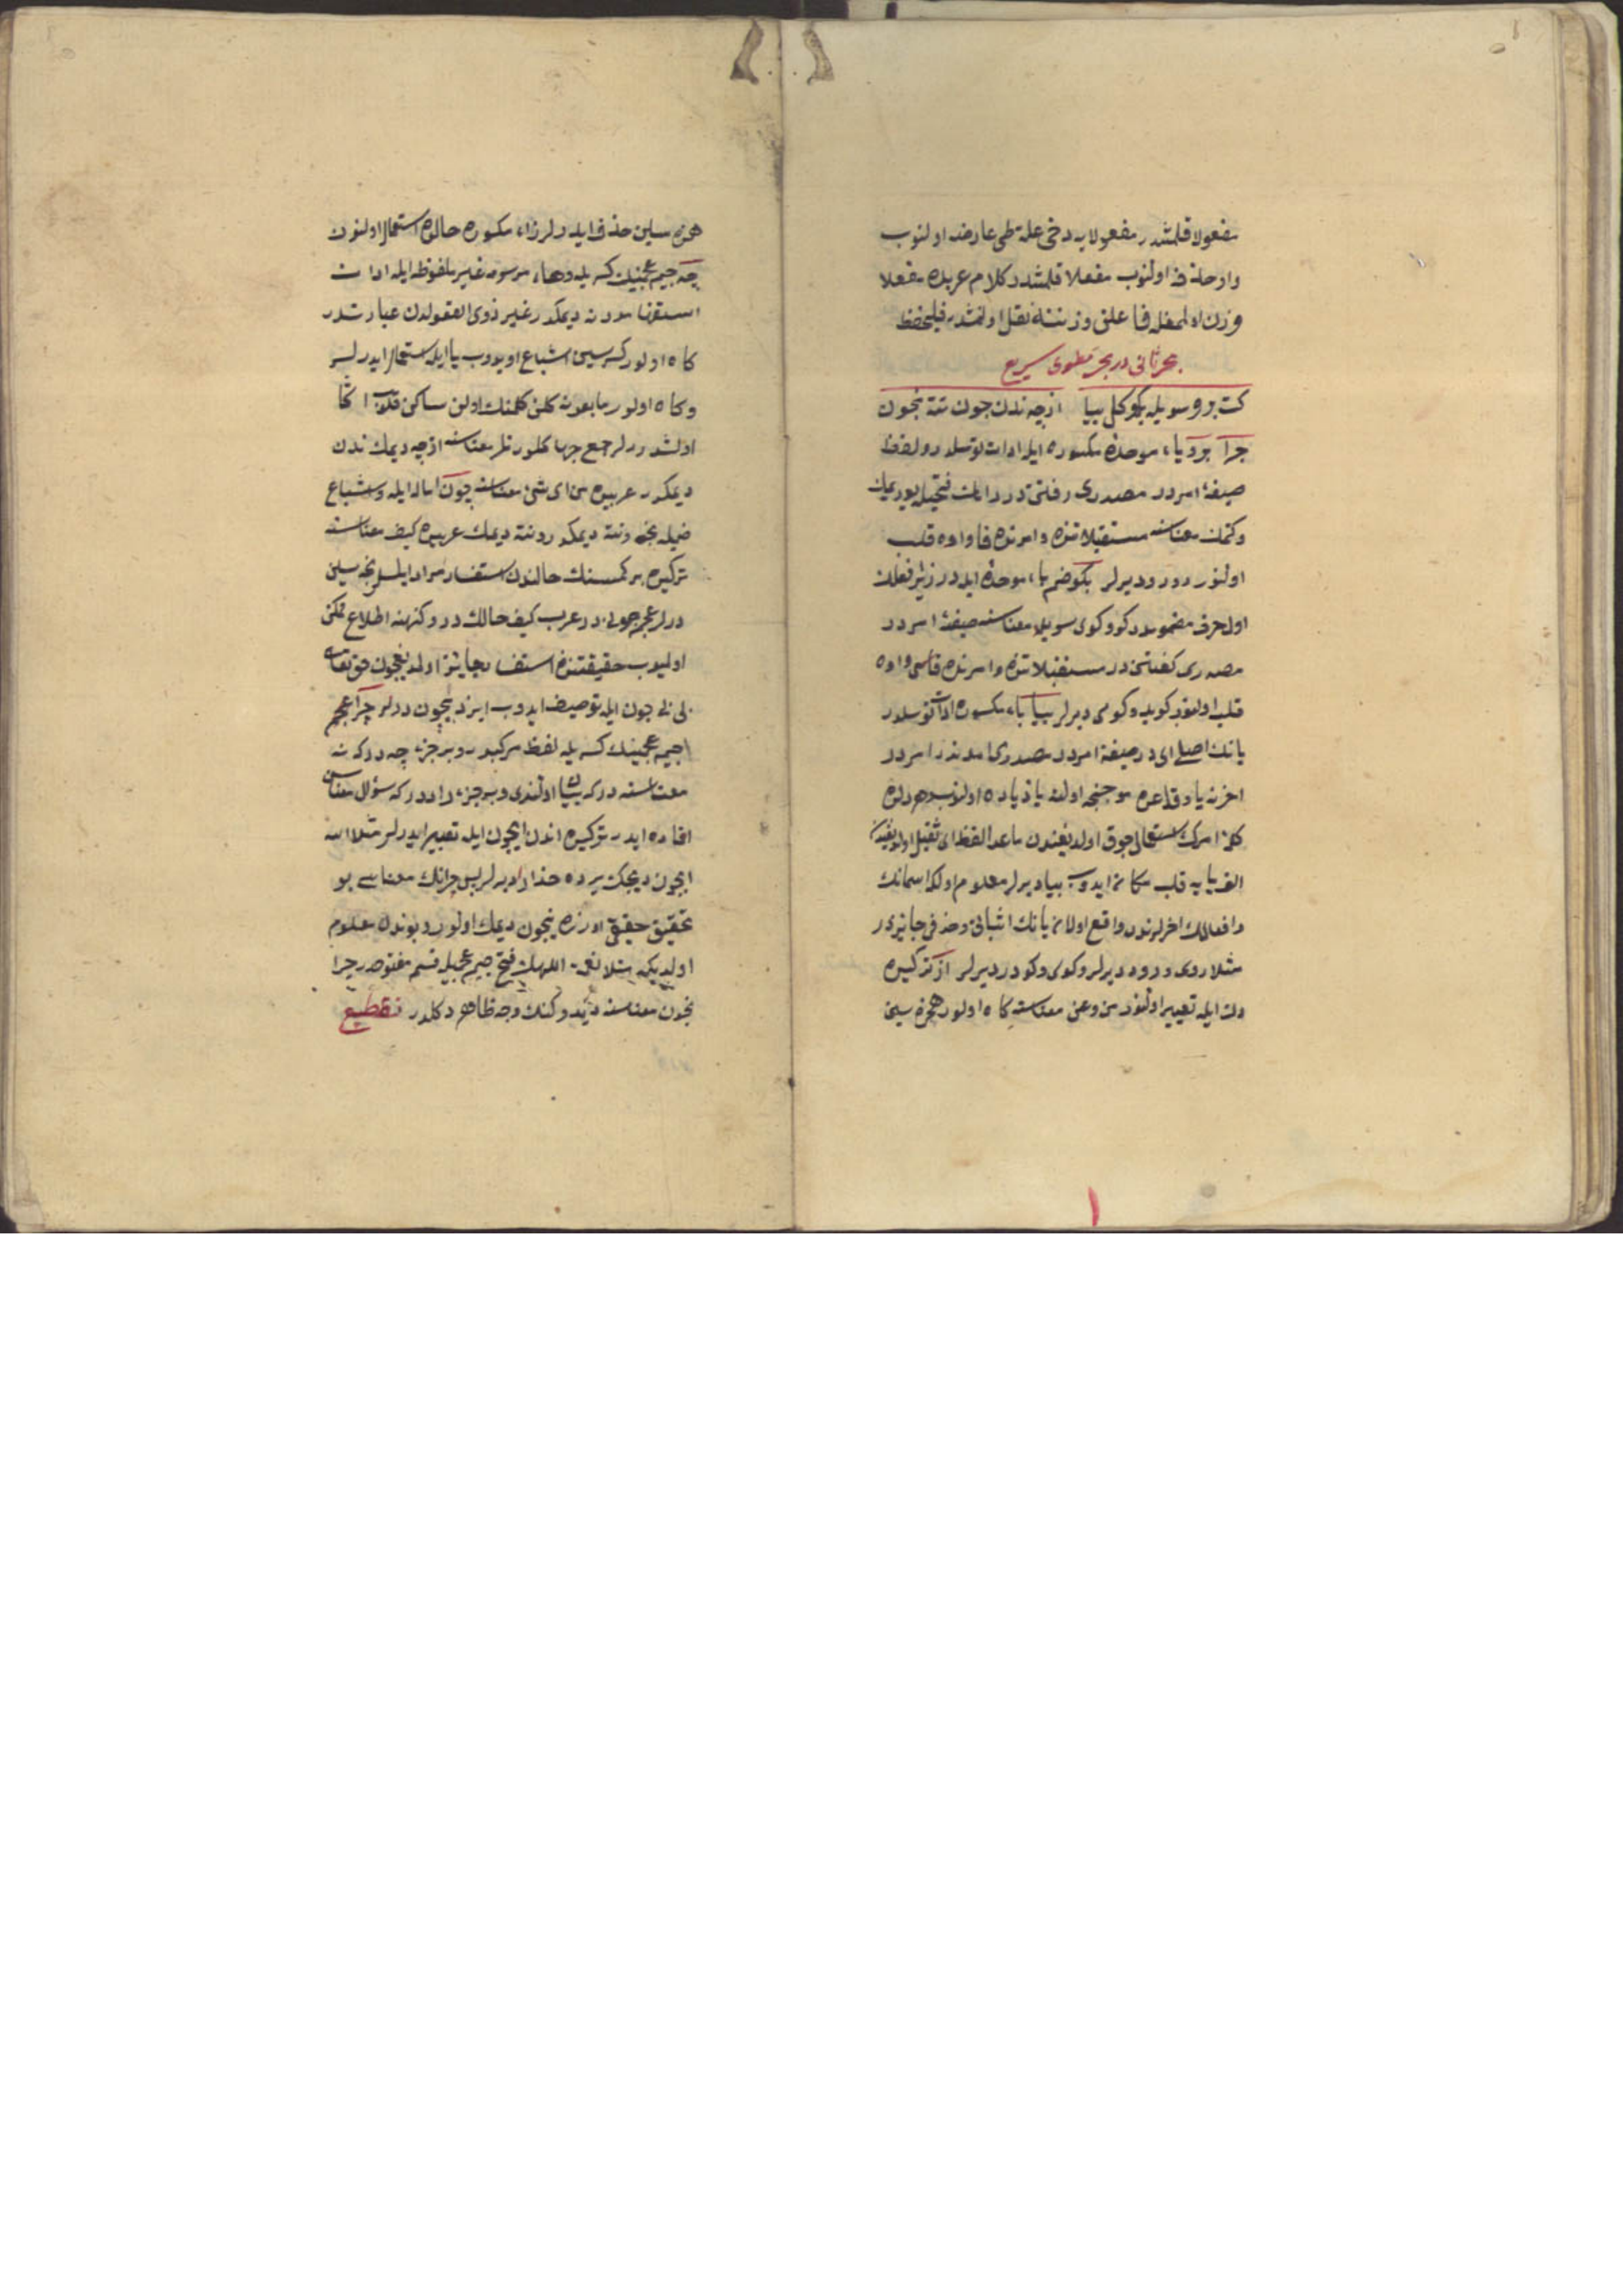 مفعولا قلمشدر مفعولایه دخی علة طی عارضه اولنوب
واو حذف اولنوب مفعلا قلمشدر کلام عربده مفعلا
وزن اولمغله فاعلن وزننه نقل اولنمشدر فلیحفظ
بحر ثانی در بحر مطوی سریع
کت برو سویله بگو کل بیا از چه ندن چون نته نچون
چرا برو یاء موحدهٔ مکسوره ایله ادات توسلدر و لفظ
صیغهٔ امردر مصدری رفتن در رانك فتحیله یوریمك
وکتمك معناسنه مستقبلاتنده و امرنده فا واوه قلب
اولنور رود رو دیرلر بگو ضم باء موحده ایله در
اول حرف مضمومدر کو وکوی سویله معناسنه صیغهٔ امردر
مصدری کفتن در مستقبلاتنده و امرنده فاسی واوه
قلب اولنوب کوید وکوی دیرلر بیا باء مکسوره ادات توسلدر
یانك اصلی ای در صیغهٔ امردر مصدری امدندر امردر
اخرنه یا وقاعده موجبنجه اولنه یا زیاده اولنوب
کلهٔ امرك استعمالی چوق اولدیغندن ماعدا لفظ ای ثقیل اولدیغندن
الف یایه قلب مکانی ایدوب بیا دیرلر معلوم اوله که اسمانك
وافعالك اخرلرندن واقع اولان یانك اثباتی وحذفی جایزدر
مثلا روی ورو دیرلر وکوی وکو دیرلر از ترکیده
دن ایله تعبیر اولنور من وعن معناسنه کاه اولور همزه سین
همزه سین حذف ایدرلر زاء مکسوره حالنده استعمال اولنور
چه جیم عجمینك کسریله وهاء مرسومه غیر ملفوظه ایله ادات
استفهامدر نه دیمکدر غیر ذوی العقولدن عبارتدر
کاه اولور کسرسین اشباع ایدوب یا ایله استعمال ایدرلر
وکاه اولور مابعدنه کلن کلمنك اولن ساکن
اولشدرلر جمع چها کلور نلر معناسنه ازچه دیمك ندن
دیمکدر عربیده من ای شیء معناسنه چون اماله ایله واشباع
ضمیله نجه ونته دیمکدر ونته دیمك عربیده کیف معناسنه
ترکیده بر کمسنك حالندن استفسار مراد ایلسه نجه سین
دیرلر عجم چونی در عرب کیف حالك در وکنهنه اطلاع ممکن
اولمیوب حقیقتنده استفسار جایز اولمدیغیچون حق تعالی
بی چون ایله توصیف ایدوب ایزد بیچون دیرلر چرا عجم
جیم عجمینك کسریله لفظ مرکبدر و بر جزء چه در که نه
معناسنه در که بیان اولندی و بر جزء را در که سؤال معناسن
افاده ایدر ترکیده اندن ایچون ایله تعبیر ایدرلر مثلا الله
ایچون دیجك یرده خدارا دیرلر پس چرانك معناسی بو
تحقیق حقیق اوزره نیچون دیمك اولور و بوندن معلوم
اولدیکه مثلا فتح جیم عجمیله
نچون معناسنه وجه ظاهر دکلدر تقطیع